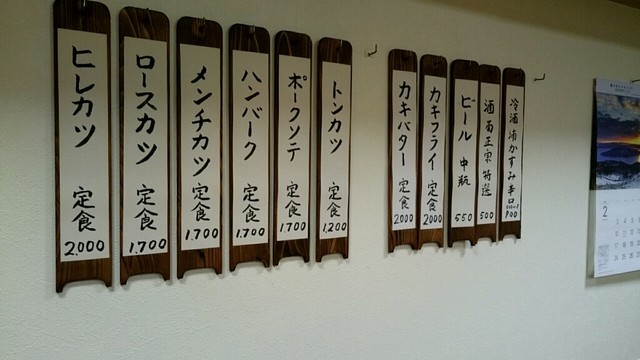 ヒレカツ 定食 2,000
ロースカツ 定食 1,700
メンチカツ 定食 1,700
ハンバーク 定食 1,700
ポークソテ 定食 1,700
トンカツ 定食 1,200
カキバター 定食 2000
カキフライ 定食 2000
ビール 中瓶 550
酒 菊正宗 特選 500
冷酒 浦かすみ 辛口 900
2